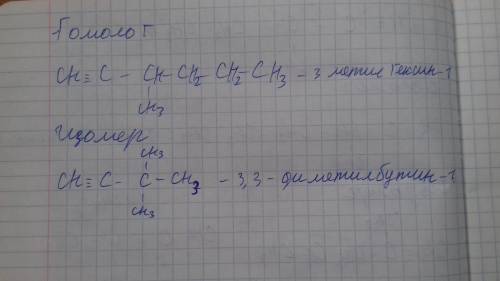 Гомолог
CH≡C - CH-CH2-CH2-CH3 - 3 метил гексин-1
CH3
Изомер
CH3
CH≡C- C-CH3 - 3,3-диметилбутин-1
CH3